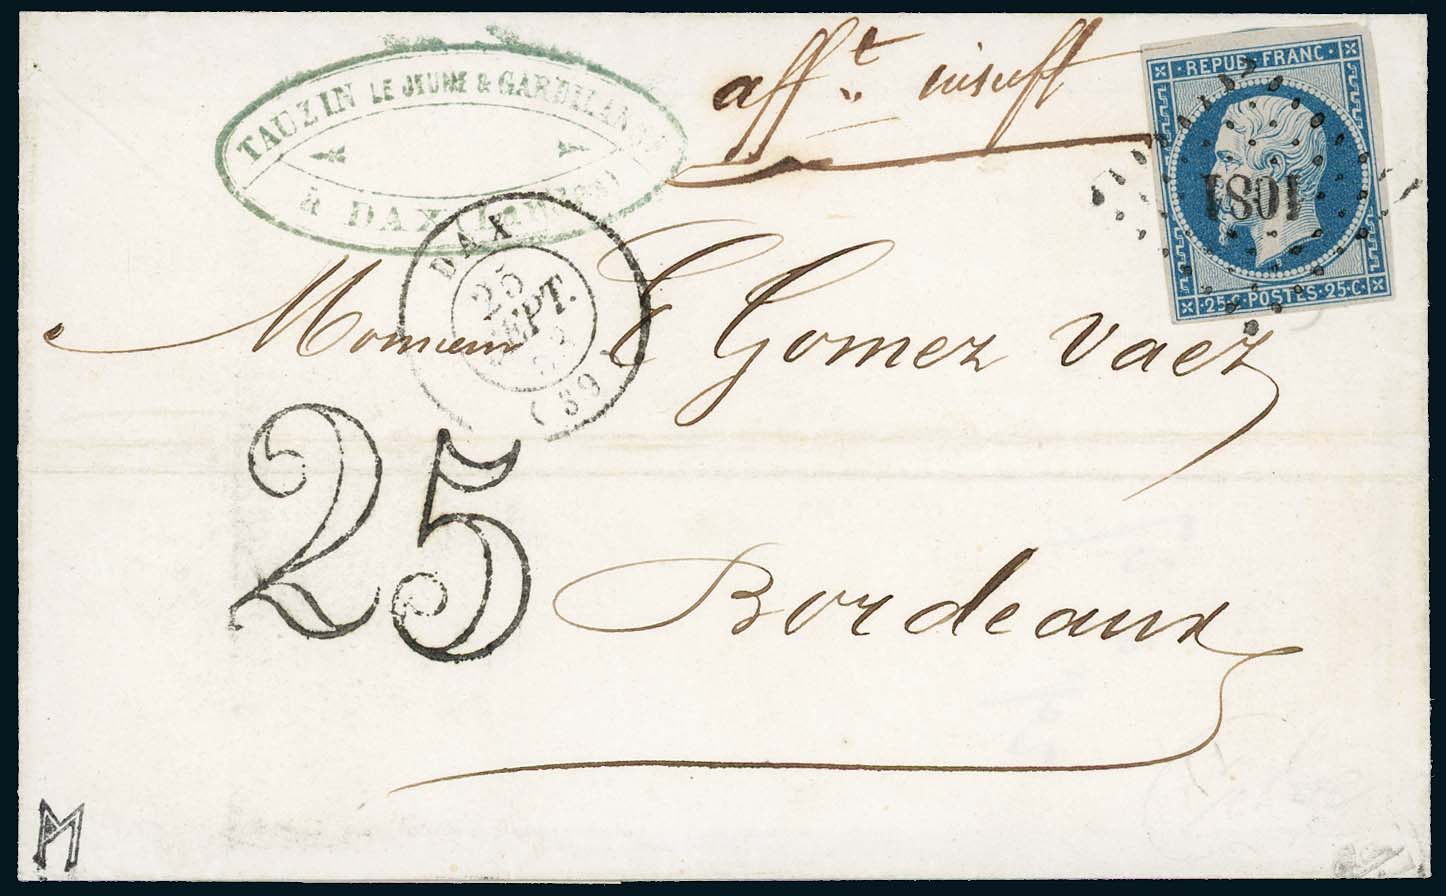 TAUZIN LE JEUNE & GARDILANNE
à DAX (Landes)
aff.t insuft
REPUB. FRANC.
1081
25 POSTES 25 C.
DAX
25
SEPT.
(39)
Monsieur E Gomez Vaez
25
Bordeaux
M